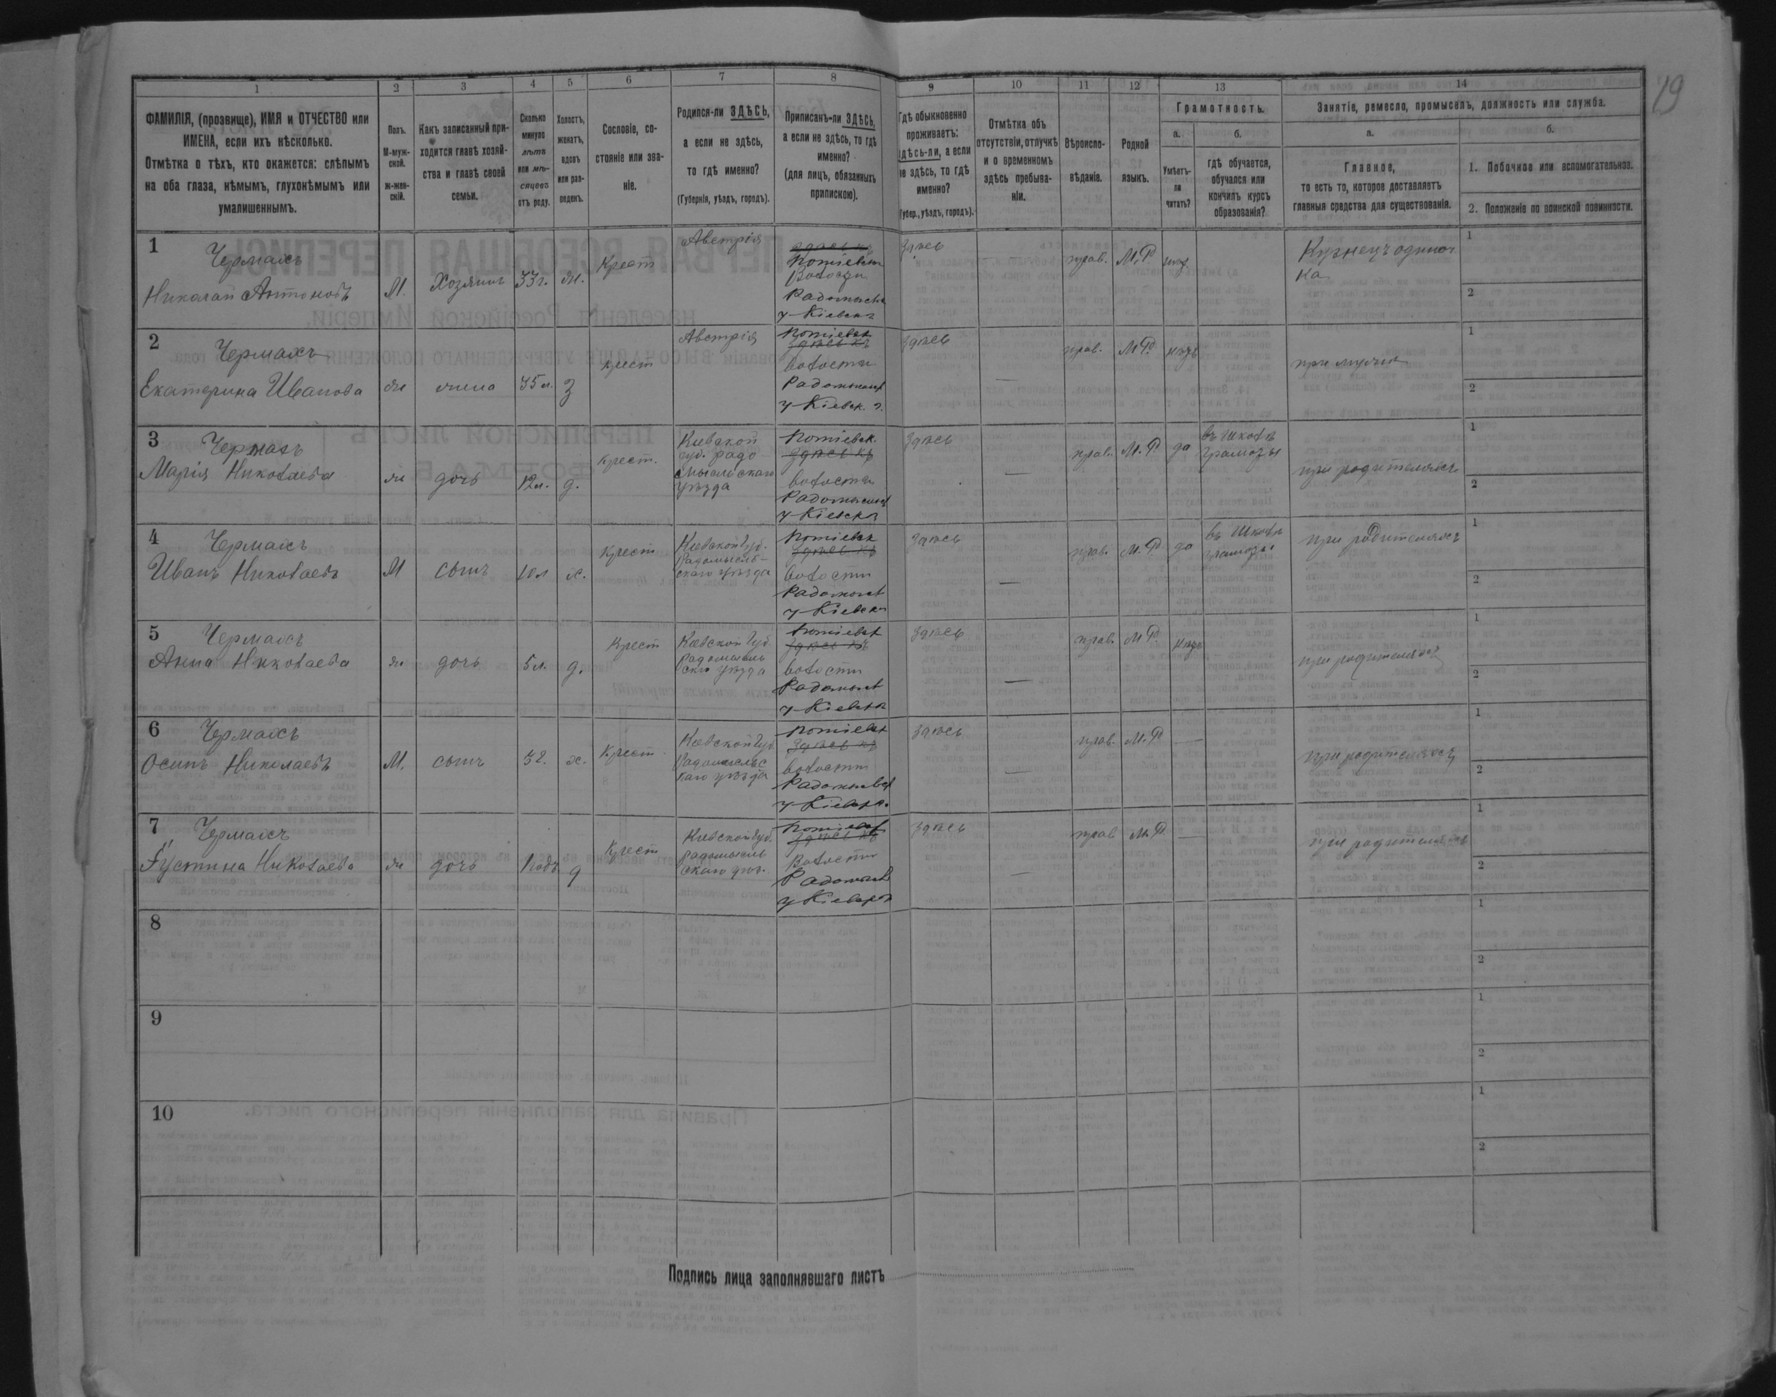 19
1 2 3 4 5 6 7 8 9 10 11 12 13 14
ФАМИЛІЯ, (прозвище), ИМЯ и ОТЧЕСТВО или
ИМЕНА, если ихъ нѣсколько.
Отмѣтка о тѣхъ, кто окажется: слѣпымъ
на оба глаза, нѣмымъ, глухонѣмымъ или
умалишеннымъ.
Полъ.
М-муж-
ской.
ж-жен-
скій.
Какъ записанный при-
ходится главѣ хозяй-
ства и главѣ своей
семьи.
Сколько
минуло
лѣтъ
или мѣ-
сяцевъ
отъ роду.
Холостъ,
женатъ,
вдовъ
или раз-
веденъ.
Сословіе, со-
стояніе или зва-
ніе.
Родился-ли ЗДѢСЬ,
а если не здѣсь,
то гдѣ именно?
(Губернія, уѣздъ, городъ).
Приписанъ-ли ЗДѢСЬ,
а если не здѣсь, то гдѣ
именно?
(для лицъ, обязанныхъ
припискою).
Гдѣ обыкновенно
проживаетъ:
здѣсь-ли, а если
не здѣсь, то гдѣ
именно?
(Губер., уѣздъ, городъ).
Отмѣтка объ
отсутствіи, отлучкѣ
и о временномъ
здѣсь пребыва-
ніи.
Вѣроиспо-
вѣданіе.
Родной
языкъ.
Грамотность.
а.
Умѣетъ-
ли
читать?
б.
гдѣ обучается,
обучался или
кончилъ курсъ
образованія?
Занятіе, ремесло, промыселъ, должность или служба.
а.
Главное,
то есть то, которое доставляетъ
главныя средства для существованія.
б.
1. Побочное или вспомогательное.
2. Положеніе по воинской повинности.
1
Чермакъ
Николай Антоновъ
М.
Хозяинъ
33г.
ж.
Крест
Австрія
здѣсь
Потіевской
Радомысл
у Кіевск
здѣсь
—
прав.
М.Р
1
2
2
Чермакъ
Екатерина Иванова
жена
35 л.
з
крест
Австрія
Потіевск
волости
у Кіевск. г.
здѣсь
—
прав.
М.Р.
при мужѣ
1
2
3
Чермакъ
Марія Николаева
дочь
12л.
д.
крест.
Кіевской
губ. радо
мысльскаго
уѣзда
Потіевск.
волости
у Кіевск
здѣсь
—
прав.
М.Р
да
въ школѣ
грамоты
при родителяхъ
1
2
4
Чермакъ
Иванъ Николаевъ
М
сынъ
10л
х.
крест
Кіевской губ.
Радомысль-
скаго уѣзда
Потіевск
волости
у Кіевск
здѣсь
—
прав.
М.Р
да
въ школѣ
грамоты
при родителяхъ
1
2
5
Чермакъ
Анна Николаева
дочь
5 л.
д.
Крест
Кіевской Губ
Радомысль
скаго уѣзда
Потіевск
волости
у Кіевск
здѣсь
—
прав.
М.Р
при родителяхъ
1
2
6
Чермакъ
Осипъ Николаевъ
М.
сынъ
3г.
х.
Крест
Кіевской Губ
Радомысльс
каго уѣзда
Потіевск
волости
у Кіевск.
здѣсь
—
прав.
М.Р
—
при родителяхъ
1
2
7
Чермакъ
Устина Николаева
дочь
1годъ
д
Крест
Кіевской губ.
радомысль
скаго уѣз.
Потіевск
волости
у Кіевск
здѣсь
—
прав
М.Р
—
при родителяхъ
1
2
8
1
2
9
1
2
10
1
2
Подпись лица заполнявшаго листъ